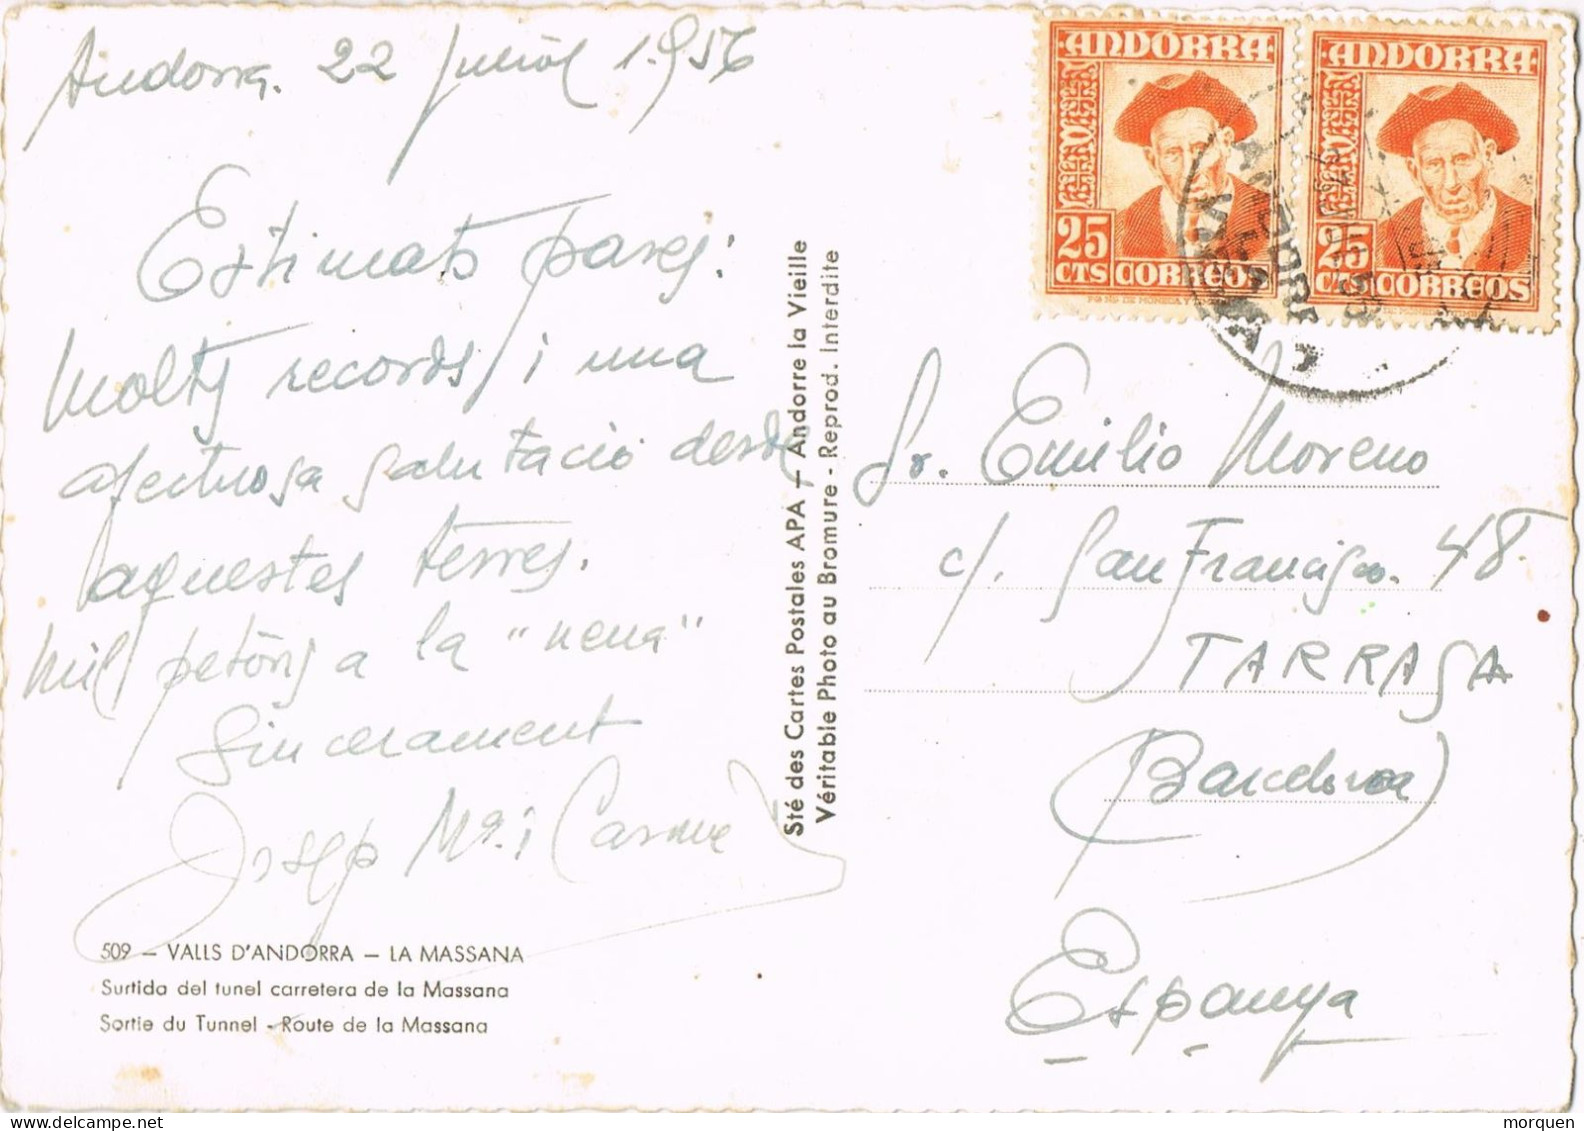 Andorra. 22 Juliol 1.956
Estimats pares:
Molts records i una
afectuosa salutació desde
aquestes terres.
Mil petons a la "nena"
Sincerament
Josep Mª i Carme
509 — VALLS D'ANDORRA — LA MASSANA
Surtida del tunel carretera de la Massana
Sortie du Tunnel - Route de la Massana
Sté des Cartes Postales APA — Andorre la Vieille
Véritable Photo au Bromure - Reprod. Interdite
ANDORRA
25
CTS CORREOS
ANDORRA
25
CTS CORREOS
Sr. Emilio Moreno
c/. San Francisco. 48
TARRAGA
(Barcelona)
Espanya
morquen